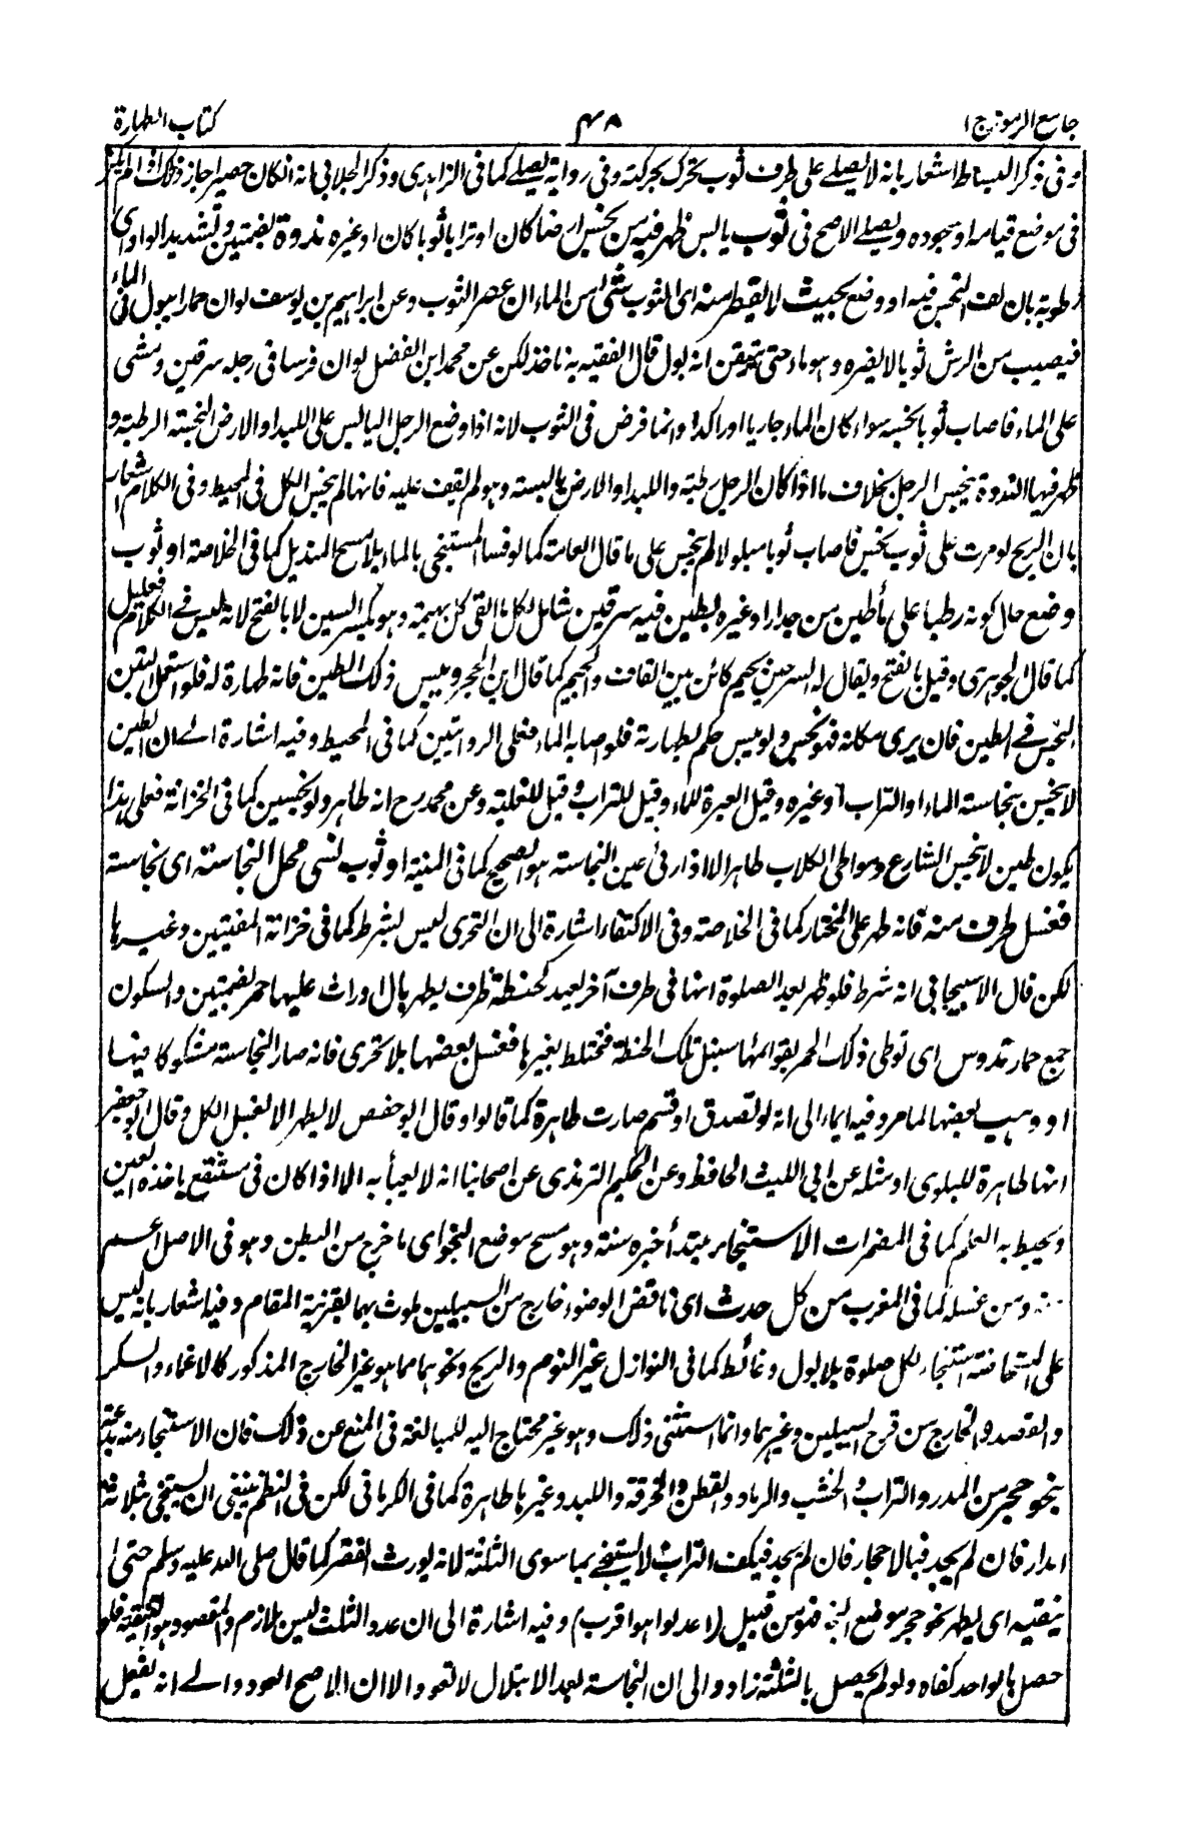 جامع الرموز ج ١
٤٨
كتاب الطهارة
و فى ذكر البساط اشعار بانه لا يصلے على طرف ثوب تحرك بحركته و فى رواية يصلے كما فى الزاهدى و ذكر الجلابى انه انكان حصيرا جاز ذلك اذا لم يكن
فى موضع قيامه او سجوده و يصلے الاصح فى ثوب يابس ظهر فيه من نجس ارضا كان او ترابا ثوبا كان او غيره ندوة بضمتين و تشديد الواو اى
رطوبة بان لف النجس فيه او وضع بحيث لا يقطر منه اى الثوب شئ من الماء ان عصر الثوب و عن ابراهيم بن يوسف لو ان حمارا يبول فى الماء
فيصيب من الرش ثوبا لا يضره و هو ماء حتى يتيقن انه بول قال الفقيه به ناخذ لكن عن محمد ابن الفضل لو ان فرسا فى رجله سرقين و مشى
على الماء فاصاب ثوبا نجسه سواء كان الماء جاريا او راكدا و انما فرض فى الثوب لانه اذا وضع الرجل اليابس على اللبد او الارض النجسته الرطبة و
ظهر فيها الندوة ينجس الرجل بخلاف ما اذا كان الرجل رطبة و اللبد او الارض يابسته و هو لم يقف عليه فانها لم ينجس الكل فى المحيط و فى الكلام اشعار
بان الريح لو مرت على ثوب نجس فاصاب ثوبا مبلولا لم ينجس على ما قال العامة كما لو فسا المستنجى بالماء بلا مسح المنديل كما فى الخلاصة او ثوب
وضع حال كونه رطبا على ما طين من جدار او غيره بطين فيه سرقين شامل لكل ما القى كل بهيمة و هو بكسر السين لا بالفتح لانه ليس فے الكلام فعليل
كما قال الجوهرى و قيل بالفتح و يقال له السرجين بجيم كائن بين القاف و الجيم كما قال ابن الحجر و يبس ذلك الطين فانه طهارة له فلو استعمل التبن
النجس فے الطين فان يرى مكانه فهو نجس و لو يبس حكم بطهارته فلو اصابه الماء فعلى الروايتين كما فى المحيط و فيه اشارة الے ان الطين
لا ينجس بنجاسة الماء او التراب او غيره و قيل العبرة للماء و قيل للتراب و قيل للغلبة و عن محمد رح انه طاهر و لو نجسين كما فى الخزانة فعلى هذا
يكون طين لا ينجس الشارع و مواطى الكلاب طاهرا الا اذا رئى عين النجاسة هو الصحيح كما فى المنية او ثوب نسى محل النجاسته اى نجاسته
فغسل طرف منه فانه طهر على المختار كما فى الخلاصته و فى الاكتفاء اشارة الى ان التحرى ليس بشرط كما فى خزانة المفتيين و غيرها
لكن قال الاسبيجابى انه شرط فلو ظهر بعد الصلوة انها فى طرف آخر يعيد كحنطة ظرف يطهر بال او راث عليها حمر بضمتين و السكون
جمع حمار تدوس اى توطى ذلك الحمر بقوائمها سنبل تلك الحنطة فتختلط بغيرها فغسل بعضها بلا تحرى فانه صار النجاسته مشكوكا فيها
او وهب بعضها لما مر و فيه ايماء الى انه لو تصدق او قسم صارت طاهرة كما قالوا و قال ابو حفص لا يطهر الا بغسل الكل و قال ابو جعفر
انها طاهرة للبلوى او مثله عن ابى الليث الحافظ و عن الحكيم الترمذى عن اصحابنا انه لا يعبأ به الا اذا كان فى مستنقع ياخذه العين
و يحيط به العلم كما فى المضمرات الاستنجاء مبتدأ خبره سنة و هو مسح موضع النجو اى ما خرج من البطن و هو فى الاصل اعم
منه و من غسله كما فى المغرب من كل حدث اى ناقض الوضوء خارج من السبيلين يلوث بهما بقرينة المقام و فيه اشعار بانه ليس
على المستحاضته استنجاء لكل صلوة بلا بول و غائط كما فى النوازل غير النوم و الريح و نحوهما مما هو غير الخارج المذكور كالاغماء و السكر
و الفصد و الخارج من قرح السبيلين و غيرهما و انما استثنى ذلك و هو غير محتاج اليه للمبالغة فى المنع عن ذلك فان الاستنجاء منه بدعة
بنحو حجر من المدر و التراب و الخشب و الرماد و القطن و الخرقة و اللبد و غيرها طاهرة كما فى الكرمانى لكن فى النظم ينبغى ان يستنجى بثلاثة
امدار فان لم يجد فبالاحجار فان لم يجد فبكف التراب لا يستنجے بما سوى الثلثة لانه يورث الفقر كما قال صلى الله عليه و سلم حتى
ينقيه اى يطهر نحو حجر موضع النجو فهو من قبيل (اعدلوا هو اقرب) و فيه اشارة الى ان عدد الثلث ليس بلازم و المقصود هو التنقية فلو
حصل بالواحد كفاه و لو لم يحصل بالثلثة زاد و الى ان النجاسة بعد الابتلال لا تعود الا ان الاصح العود و الے انه يفعل